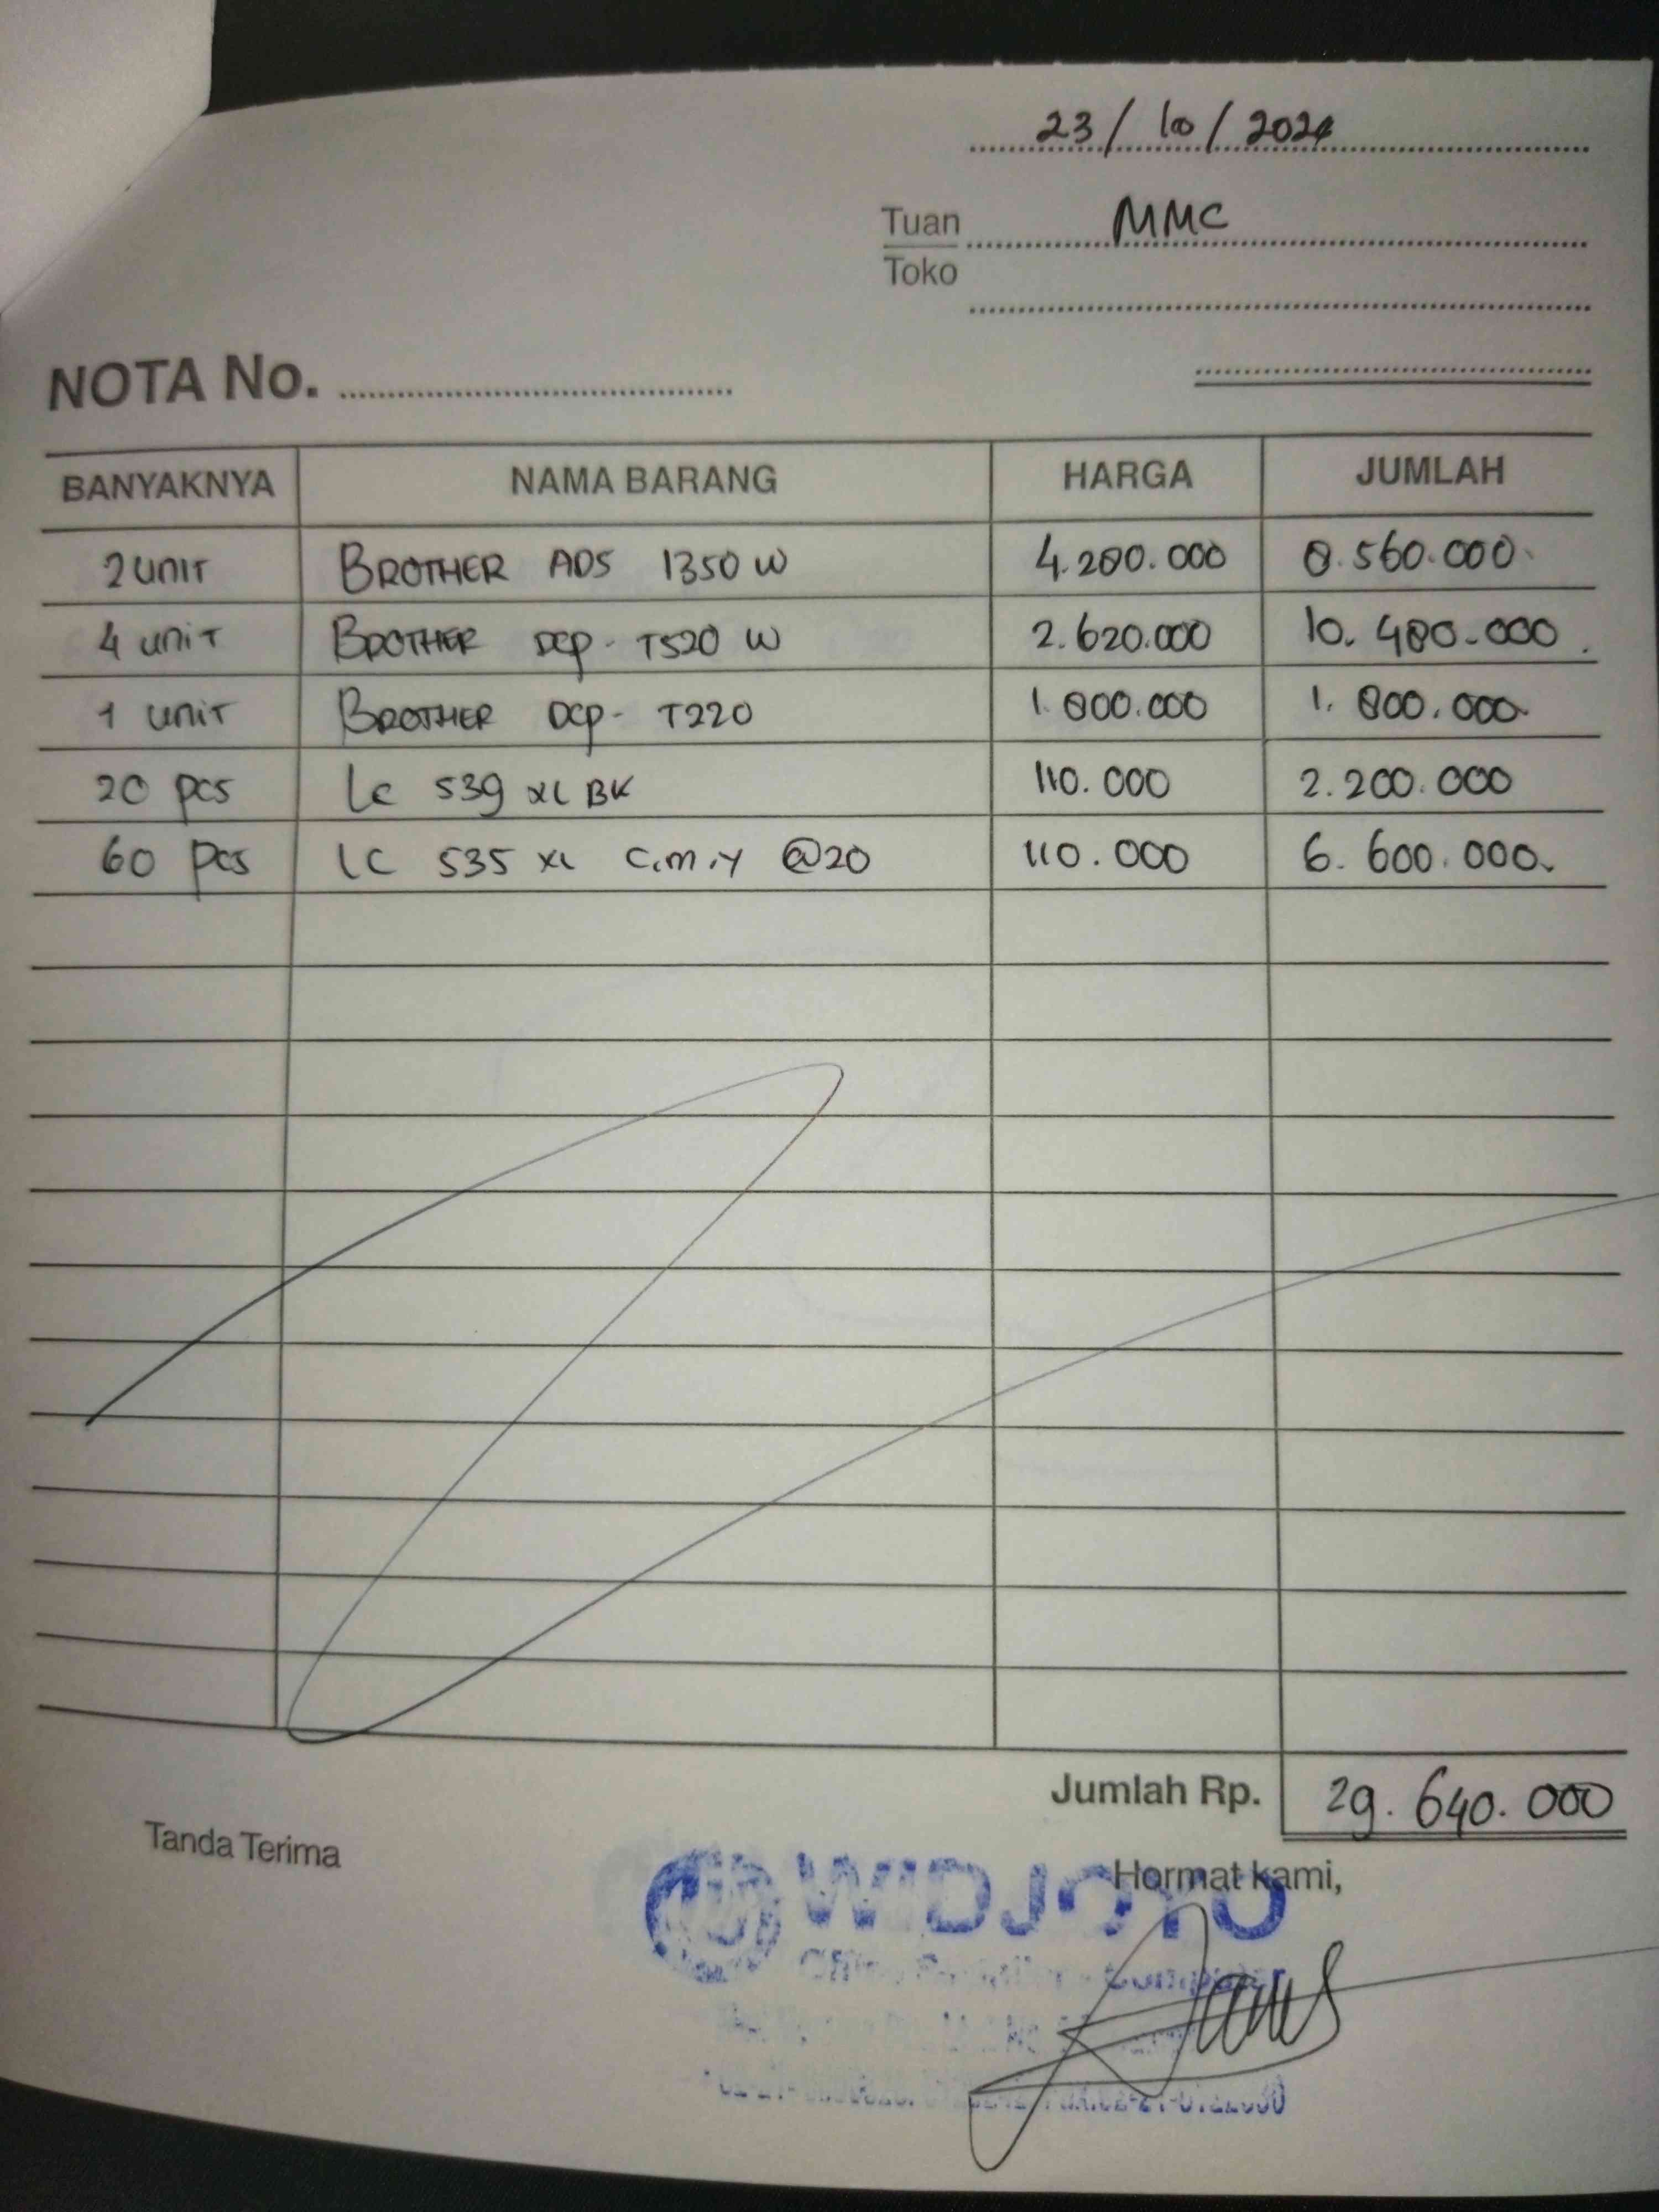 23/10/2024
Tuan MMC
Toko
NOTA No.
BANYAKNYA NAMA BARANG HARGA JUMLAH
2 UNIT BROTHER ADS 1350 W 4.280.000 8.560.000
4 UNIT BROTHER DCP-T520 W 2.620.000 10.480.000
1 UNIT BROTHER DCP-T220 1.800.000 1.800.000
20 pcs LC 539 XL BK 110.000 2.200.000
60 pcs LC 535 XL C.M.Y @20 110.000 6.600.000
Jumlah Rp. 29.640.000
Tanda Terima
Hormat kami,
WIDJOYO